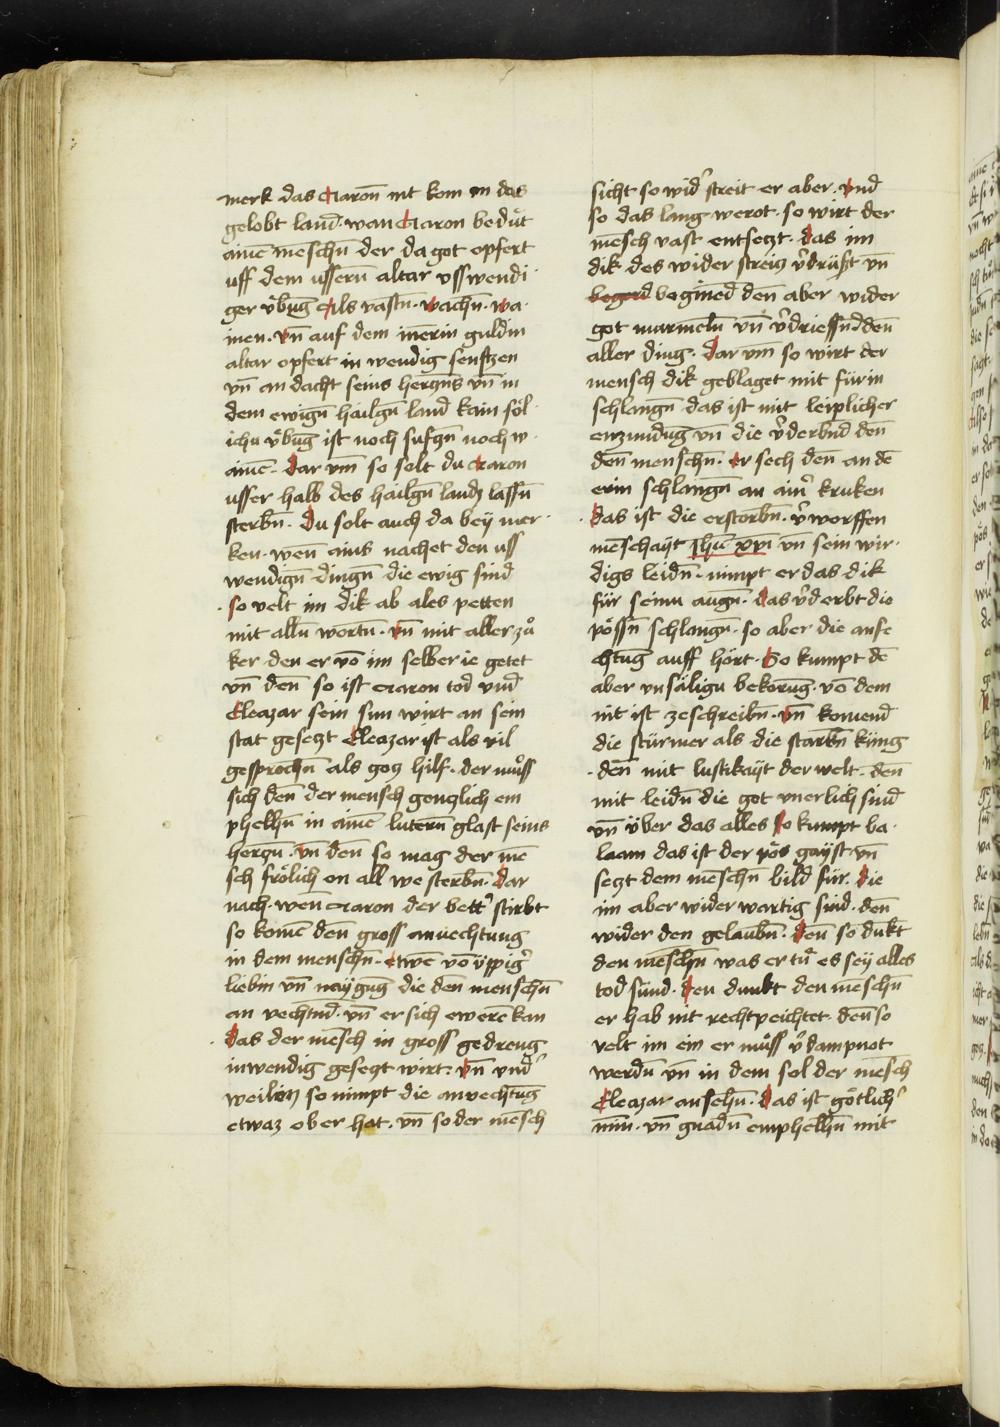 merk das Aaron̄ nit kom in das
gelobt land̄. wan Aaron bedüt
ainē menschn̄ der da got opfert
uff dem ussern̄ altar usswendi
ger v̈bunḡ Als vastn̄. wachn̄. wa
inen. vn̄ auf dem inerin guldin
altar opfert in wendig senftzen
vn̄ an dacht seins hertzns vn̄ in
dem ewign̄ hailgn̄ land̄ kain söl
ichu v̈bunḡ ist noch sufgn̄ noch w
ainē. Dar vm̄ so solt du Aaron
usser halb des hailgn̄ landz lassn̄
sterbn̄. Du solt auch da beÿ mer
ken. wen̄ ains nachet den uss
wendign̄ dingn̄ die ewig sind̄
so velt im dik ab ales petten
mit alln̄ wortn̄. vn̄ mit aller zů
ker den er vō im selber ie getet
vn̄ den̄ so ist Aaron tod vnd̄
Eleazar sein sun wirt an sein
stat gesetzt Eleazar ist als vil
gesprochn̄ als gotz hilf. der můss
sich den̄ der mensch gentzlich em
phelhn̄ in ainē lutern̄ glast seins
hertzn̄. vn̄ den̄ so mag der mē
sch frölich on all we sterbn̄. Dar
nach. wen̄ Aaron der vett' stirbt
so komē den gross anvechtung
in dem menschn̄. etwē vō üppig'
liebin vn̄ naÿgunḡ die den menschn̄
an vechtnd̄. vn̄ er sich ewerē kan
Das der mēsch in gross gedreng
inwendig gesetzt wirt. vn̄ vnd'
weiln̄ so nimpt die anvechtunḡ
etwaz ober hat. vn̄ so der mēsch
sicht so wid' streit er aber. vnd̄
so das lang werot. so wirt der
mēsch vast entsetzt. das im
dik des wider streitz v'drüßt vn̄
begerd beginēd den̄ aber wider
got murmeln̄ vn̄ v'driessnd̄ den̄
aller ding. Dar vm̄ so wirt der
mensch dik geblaget mit fürin
schlangn̄ das ist mit leiplicher
enzündunḡ vn̄ die v'derbnd̄ den̄
den̄ menschn̄. er sech den̄ an dē
erin schlangn̄ an ain' kruken
Das ist die erstorbn̄. v'worffen
mēschaÿt Jhū xpī vn̄ sein wir
digs leidn̄. nimpt er das dik
für seinu augn̄. das v'derbt die
pössn̄ schlangn̄. so aber die anfe
chtunḡ auff hört. So kumpt dē
aber vnsäligu bekorunḡ. vō dem
nit ist zeschreibn̄. vn̄ komend̄
die stürmer als die starkn̄ küng
den̄ mit lustikaÿt der welt. den̄
mit leidn̄ die got vnerlich sind̄
vn̄ über das alles so kumpt ba
laam das ist der pös gaÿst. vn̄
setzt dem mēschn̄ bild für. Die
im aber wider wartig sind. den̄
wider den gelaubn̄. den̄ so dukt
den mēschn̄ was er tů es seÿ alles
tod sünd. den dunkt den mēschn̄
er hab nit recht peichtet. den̄ so
velt im ein er můss v'dampnot
werdn̄ vn̄ in dem sol der mēsch
Eleazar ansehn̄. Das ist götlich'
min̄. vn̄ gnadn̄ emphelhn̄ mit